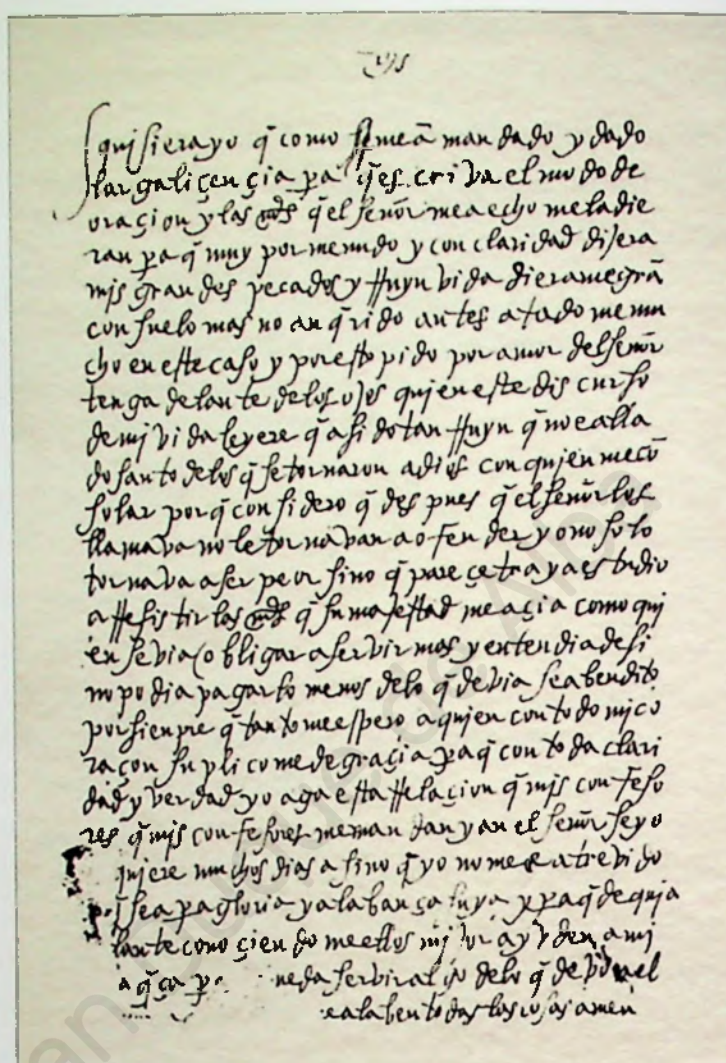 jhs
quisiera yo q̄ como me ā mandado y dado
larga liçençia pa q̄ escriva el modo de
oraçion y las mds q̄ el señor me a echo me la die
ran pa q̄ muy por menudo y con claridad dijera
mis grandes pecados y rruyn vida dierame grā
consuelo mas no an q̄rido antes atado me mu
cho en este caso y por esto pido por amor del señor
tenga delante de los ojos quien este discurso
de mi vida leyere q̄ a sido tan rruyn q̄ no e alla
do santo de los q̄ se tornaron a dios con quien me cō
solar porq̄ considero q̄ despues q̄ el señor los
llamava no le tornavan a ofender yo no solo
tornava a ser peor sino q̄ pareçe traya estudio
a rresistir las mds q̄ su majestad me açia como qui
en se via obligar a servir mas y entendia de si
no podia pagar lo menos de lo q̄ devia sea bendito
por sienpre q̄ tanto me espero a quien con todo mi co
raçon suplico me de graçia pa q̄ con toda clari
dad y verdad yo aga esta rrelaçion q̄ mis confeso
res q̄ mis confesores me mandan y an el señor se yo
quiere muchos dias a sino q̄ yo no me e atrevido
sea pa gloria y alabança suya y pa q̄ de aqui a
lante conoçiendo me ellos mijor ayuden a mi
flaq̄ça pa neda servir algo de lo q̄ devo al
alaben todas las cosas amen